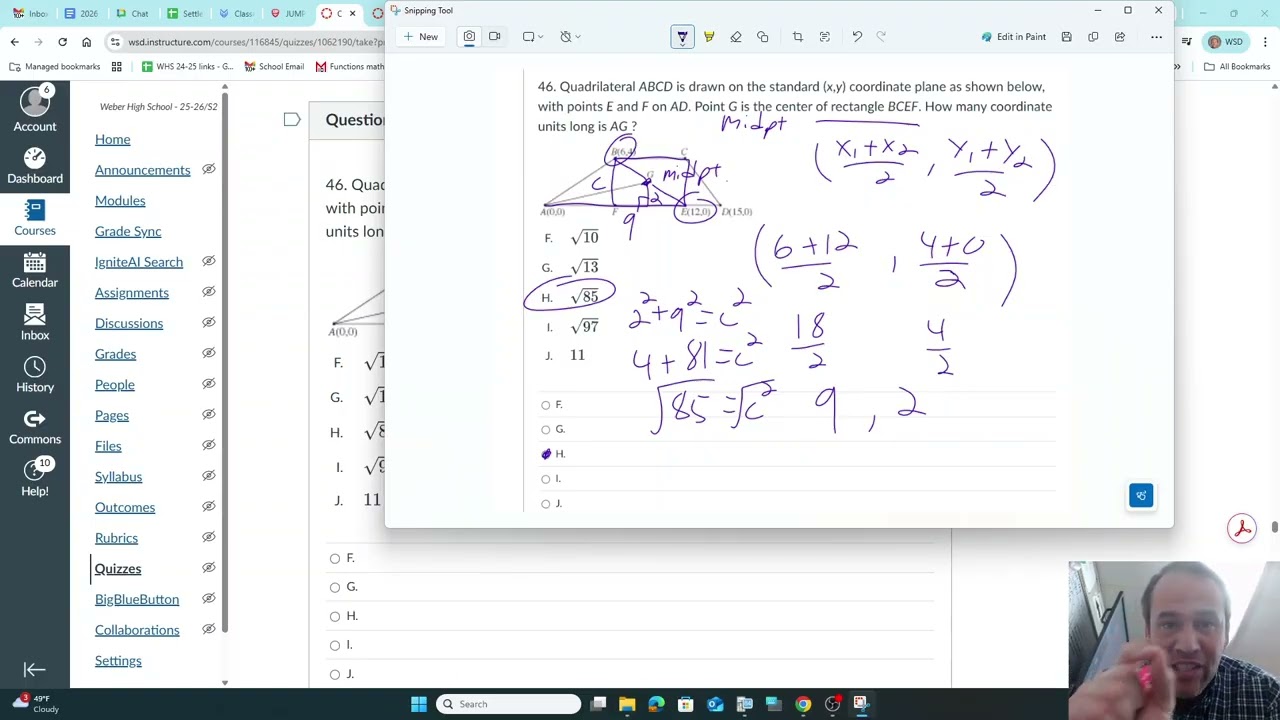 Inbo
2026
Chat
Settle
Classi
JUMP
C
Snipping Tool
wsd.instructure.com/courses/116845/quizzes/1062190/take?p
New
Edit in Paint
WSD
Managed bookmarks
WHS 24-25 links - G...
School Email
Functions math
All Bookmarks
6
Account
Dashboard
Courses
Calendar
Inbox
History
Commons
10
Help!
Weber High School - 25-26/S2
Home
Announcements
Modules
Grade Sync
IgniteAI Search
Assignments
Discussions
Grades
People
Pages
Files
Syllabus
Outcomes
Rubrics
Quizzes
BigBlueButton
Collaborations
Settings
Questio
46. Quad
with poin
units lon
A(0,0)
F. √1
G. √1
H. √8
I. √9
J. 11
F.
G.
H.
I.
J.
46. Quadrilateral ABCD is drawn on the standard (x,y) coordinate plane as shown below,
with points E and F on AD. Point G is the center of rectangle BCEF. How many coordinate
units long is AG ?
midpt
(x₁+x₂/2 , y₁+y₂/2)
B(6,4) C
G midpt
c 2
A(0,0) F E(12,0) D(15,0)
9
(6+12/2 , 4+0/2)
F. √10
G. √13
H. √85
I. √97
J. 11
2²+9²=c²
18/2 4/2
4+81=c²
√85=√c² 9 , 2
F.
G.
H.
I.
J.
3
49°F
Cloudy
Search